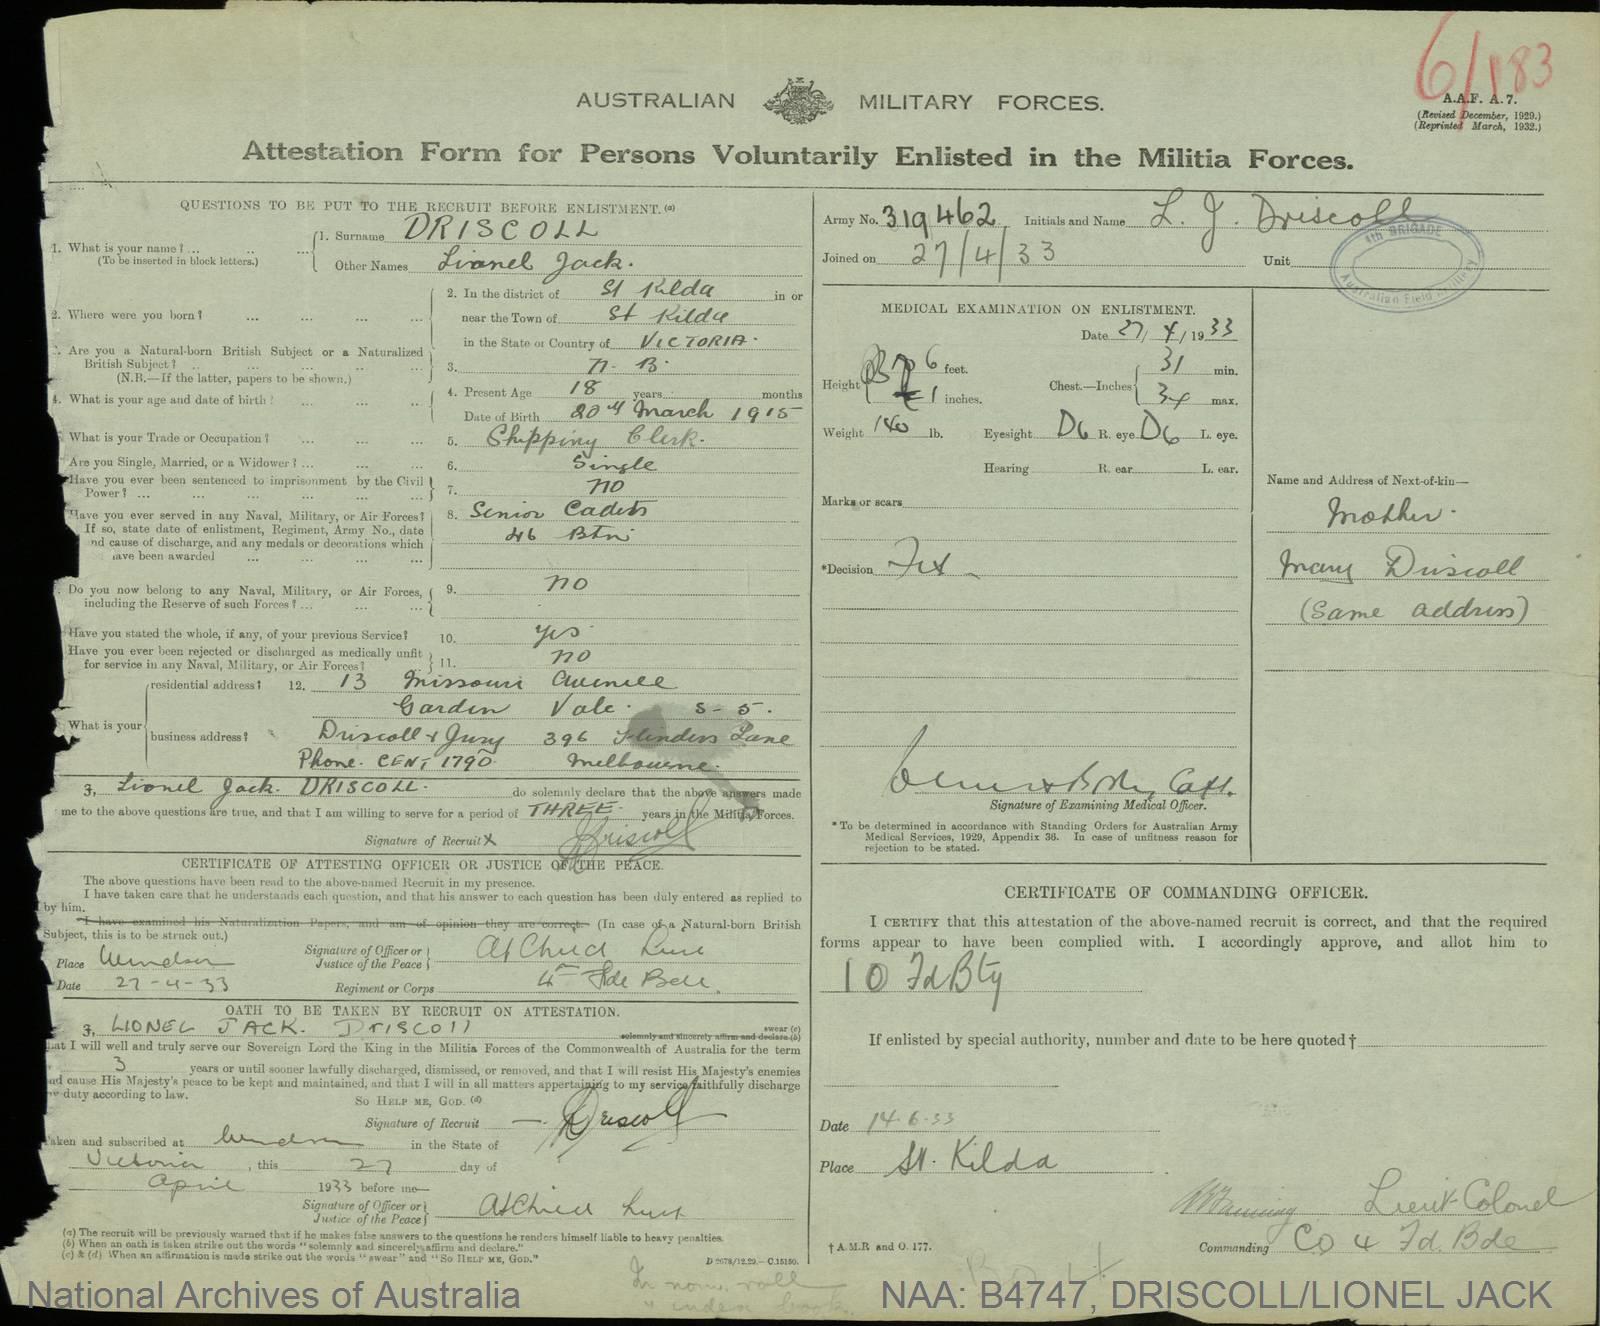 6/183
AUSTRALIAN MILITARY FORCES.
A.A.F. A.7.
(Revised December, 1929.)
(Reprinted March, 1932.)
Attestation Form for Persons Voluntarily Enlisted in the Militia Forces.
QUESTIONS TO BE PUT TO THE RECRUIT BEFORE ENLISTMENT.(a)
1. What is your name? ... ... ... 1. Surname DRISCOLL
(To be inserted in block letters.)
Other Names Lionel Jack.
2. Where were you born? ... ... ... ... 2. In the district of St Kilda in or
near the Town of St Kilda
in the State or Country of VICTORIA.
Are you a Natural-born British Subject or a Naturalized
British Subject? .. ... ... ... ... 3. N. B.
(N.B.—If the latter, papers to be shown.)
4. What is your age and date of birth? ... ... ... 4. Present Age 18 years months
Date of Birth 20th March 1915
What is your Trade or Occupation? ... ... ... 5. Shipping Clerk.
Are you Single, Married, or a Widower? ... ... ... 6. Single
Have you ever been sentenced to imprisonment by the Civil
Power? ... ... ... ... ... ... 7. NO
Have you ever served in any Naval, Military, or Air Forces? 8. Senior Cadets
If so, state date of enlistment, Regiment, Army No., date 46 Btn
and cause of discharge, and any medals or decorations which
have been awarded ... ... ... ...
Do you now belong to any Naval, Military, or Air Forces, 9. NO
including the Reserve of such Forces? ... ... ...
Have you stated the whole, if any, of your previous Service? 10. Yes
Have you ever been rejected or discharged as medically unfit
for service in any Naval, Military, or Air Forces? 11. NO
What is your residential address? 12. 13 Missouri Avenue
Garden Vale. S-5.
business address? Driscoll & Jury 396 Flinders Lane
Phone. CENT 1790 Melbourne.
I, Lionel Jack. DRISCOLL. do solemnly declare that the above answers made
me to the above questions are true, and that I am willing to serve for a period of THREE years in the Militia Forces.
Signature of Recruit X Driscoll
CERTIFICATE OF ATTESTING OFFICER OR JUSTICE OF THE PEACE.
The above questions have been read to the above-named Recruit in my presence.
I have taken care that he understands each question, and that his answer to each question has been duly entered as replied to
by him.
I have examined his Naturalization Papers, and am of opinion they are correct. (In case of a Natural-born British
Subject, this is to be struck out.)
Place Windsor Signature of Officer or Justice of the Peace Lieut
Date 27-4-33 Regiment or Corps 4th Fde Bde.
OATH TO BE TAKEN BY RECRUIT ON ATTESTATION.
I, LIONEL JACK. DRISCOLL swear (c)
solemnly and sincerely affirm and declare (b)
that I will well and truly serve our Sovereign Lord the King in the Militia Forces of the Commonwealth of Australia for the term
3 years or until sooner lawfully discharged, dismissed, or removed, and that I will resist His Majesty's enemies
and cause His Majesty's peace to be kept and maintained, and that I will in all matters appertaining to my service faithfully discharge
my duty according to law.
SO HELP ME, GOD. (d)
Signature of Recruit Driscoll
Taken and subscribed at Windsor in the State of
Victoria, this 27 day of
April 1933 before me—
Signature of Officer or Justice of the Peace Lieut
(a) The recruit will be previously warned that if he makes false answers to the questions he renders himself liable to heavy penalties.
(b) When an oath is taken strike out the words "solemnly and sincerely affirm and declare."
(c) & (d) When an affirmation is made strike out the words "swear" and "So HELP ME, GOD."
D 2678/12.29.—C.15150.
In nom. roll
" index book.
Army No. 319462 Initials and Name L. J. Driscoll
Joined on 27/4/33 Unit
4th BRIGADE
Australian Field Artillery
MEDICAL EXAMINATION ON ENLISTMENT.
Date 27/4/1933
Height 6 feet. 1 inches.
Chest.—Inches 31 min. 34 max.
Weight 140 lb. Eyesight D6 R. eye D6 L. eye.
Hearing R. ear. L. ear.
Marks or scars
*Decision Fit
Capt.
Signature of Examining Medical Officer.
* To be determined in accordance with Standing Orders for Australian Army
Medical Services, 1929, Appendix 36. In case of unfitness reason for
rejection to be stated.
Name and Address of Next-of-kin—
Mother.
Mary Driscoll
(Same address)
CERTIFICATE OF COMMANDING OFFICER.
I CERTIFY that this attestation of the above-named recruit is correct, and that the required
forms appear to have been complied with. I accordingly approve, and allot him to
10 Fd Bty
If enlisted by special authority, number and date to be here quoted†
Date 14-6-33
Place St. Kilda
Lieut Colonel
Commanding CO 4 Fd. Bde
† A.M.R and O. 177.
National Archives of Australia
NAA: B4747, DRISCOLL/LIONEL JACK